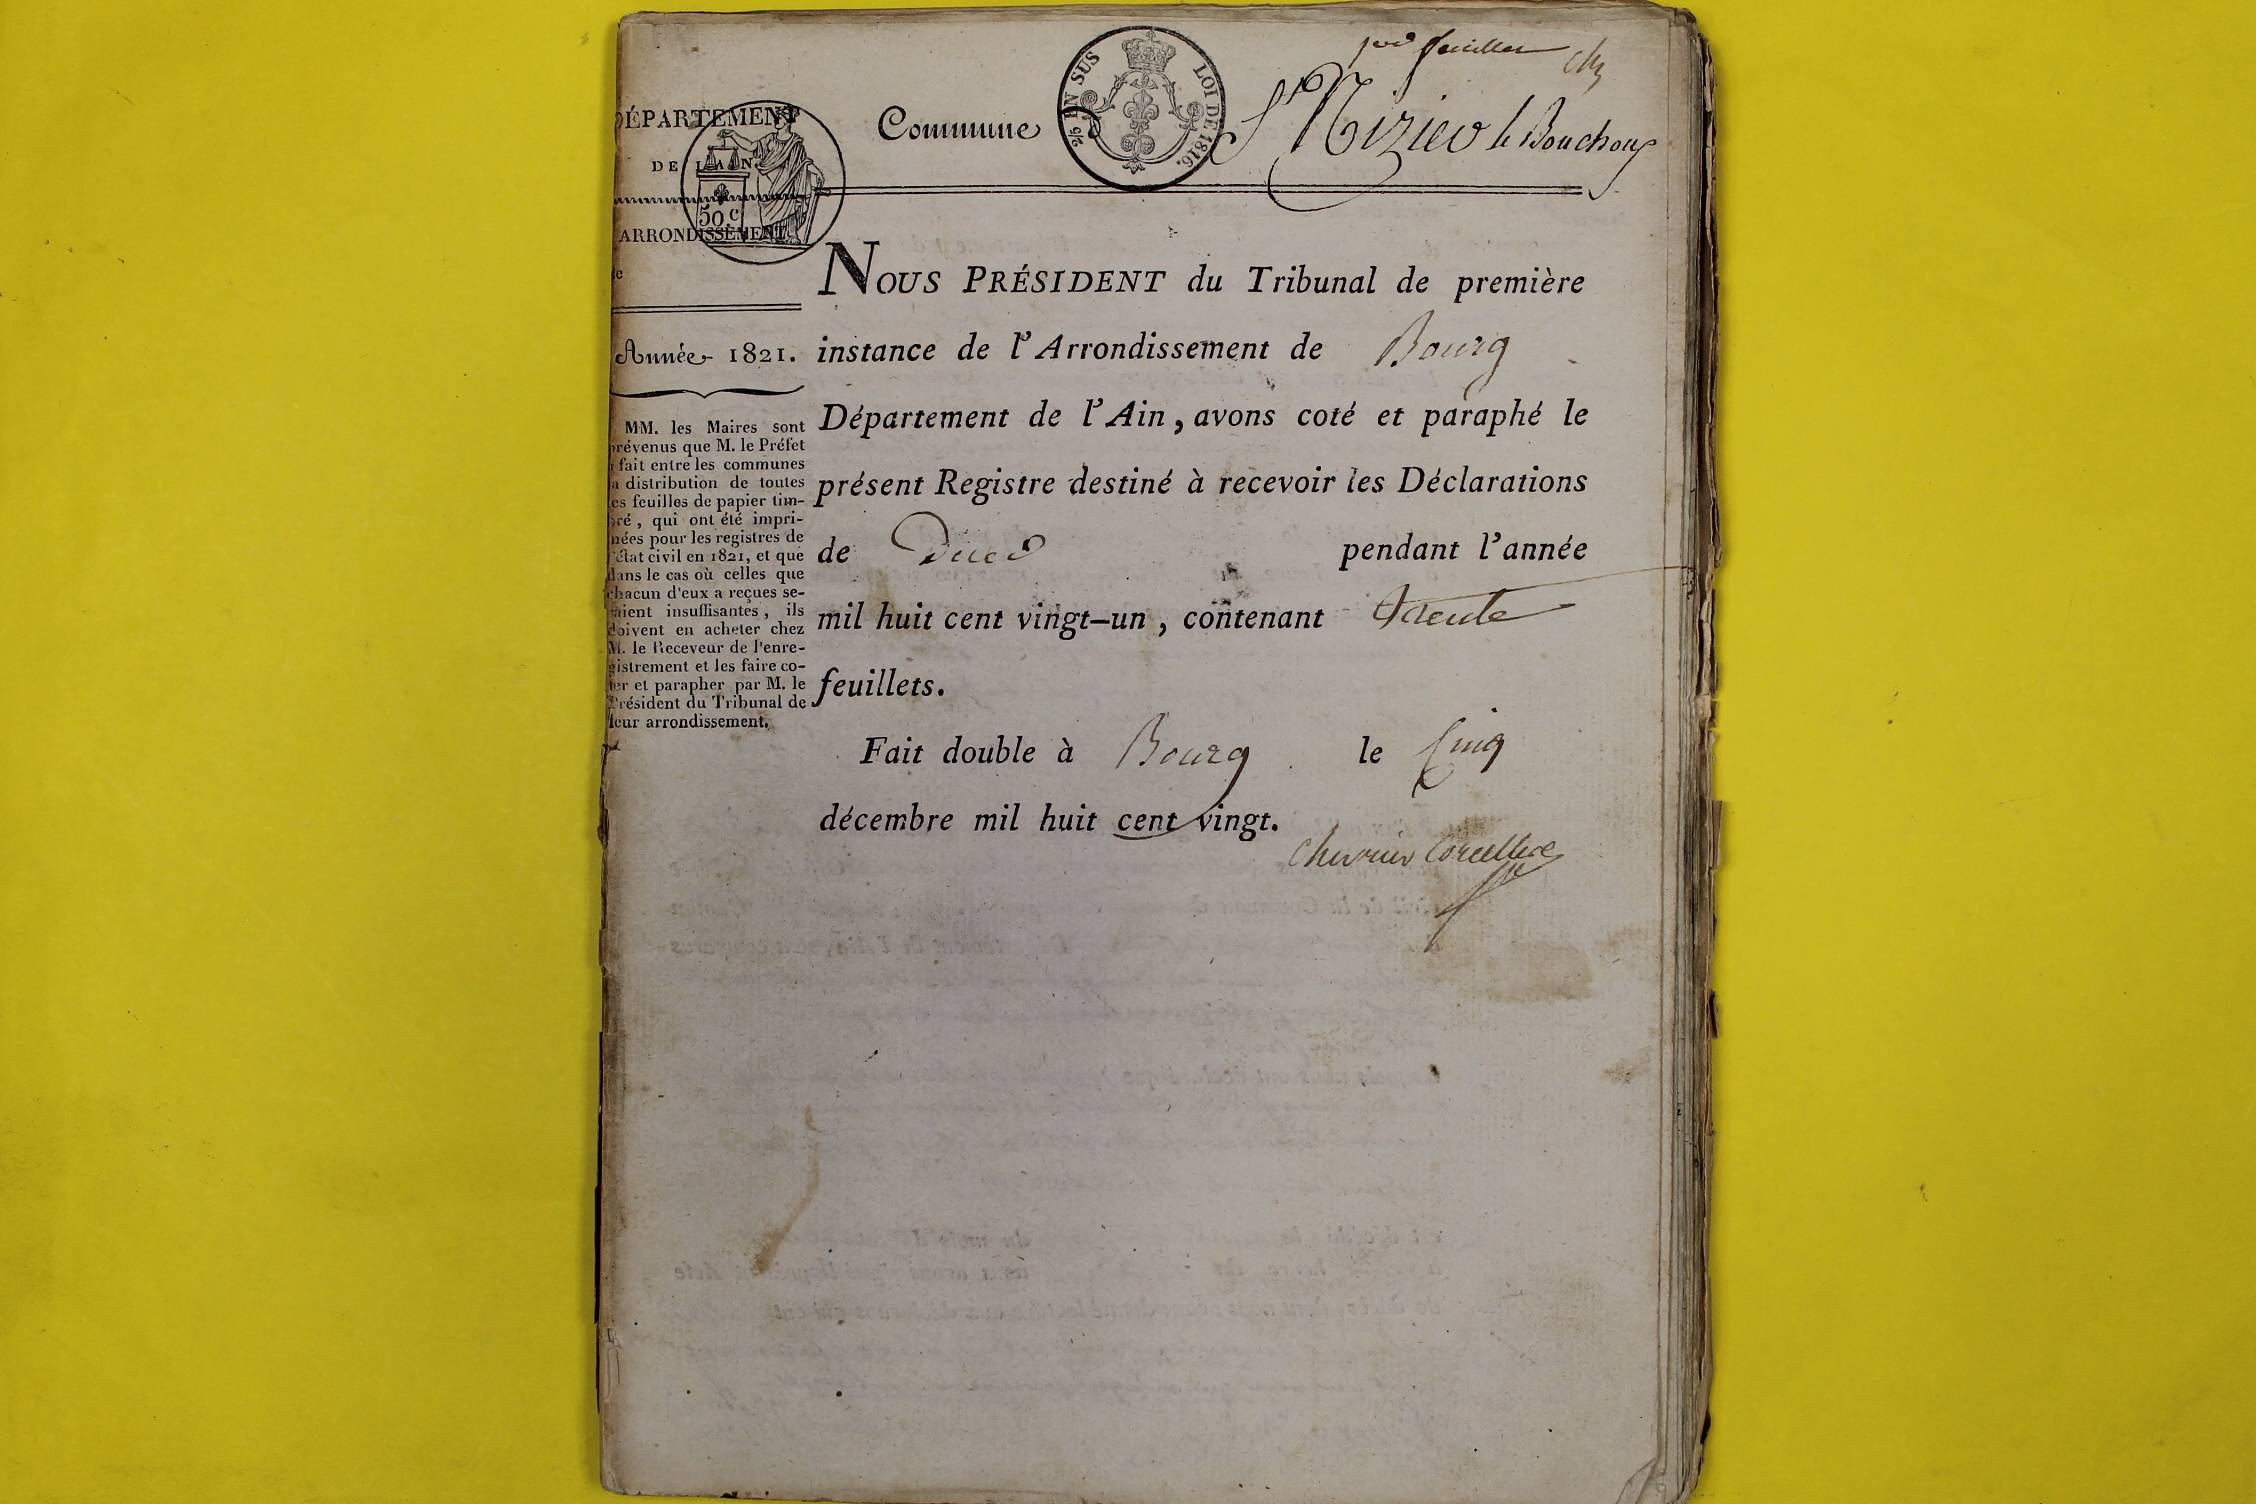 1er feuillet Ch
DÉPARTEMENT
DE L'AIN.
50 c
ARRONDISSEMENT
de
Commune St Nizier le Bouchoux
2/5 EN SUS LOI DE 1816.
Année 1821.
MM. les Maires sont
prévenus que M. le Préfet
a fait entre les communes
la distribution de toutes
les feuilles de papier tim-
bré, qui ont été impri-
mées pour les registres de
l'état civil en 1821, et que
dans le cas où celles que
chacun d'eux a reçues se-
raient insuffisantes, ils
doivent en acheter chez
M. le Receveur de l'enre-
gistrement et les faire co-
ter et parapher par M. le
Président du Tribunal de
leur arrondissement.
NOUS PRÉSIDENT du Tribunal de première
instance de l'Arrondissement de Bourg
Département de l'Ain, avons coté et paraphé le
présent Registre destiné à recevoir les Déclarations
de Décès pendant l'année
mil huit cent vingt-un, contenant trente
feuillets.
Fait double à Bourg le Cinq
décembre mil huit cent vingt.
Chevrier Corcelles